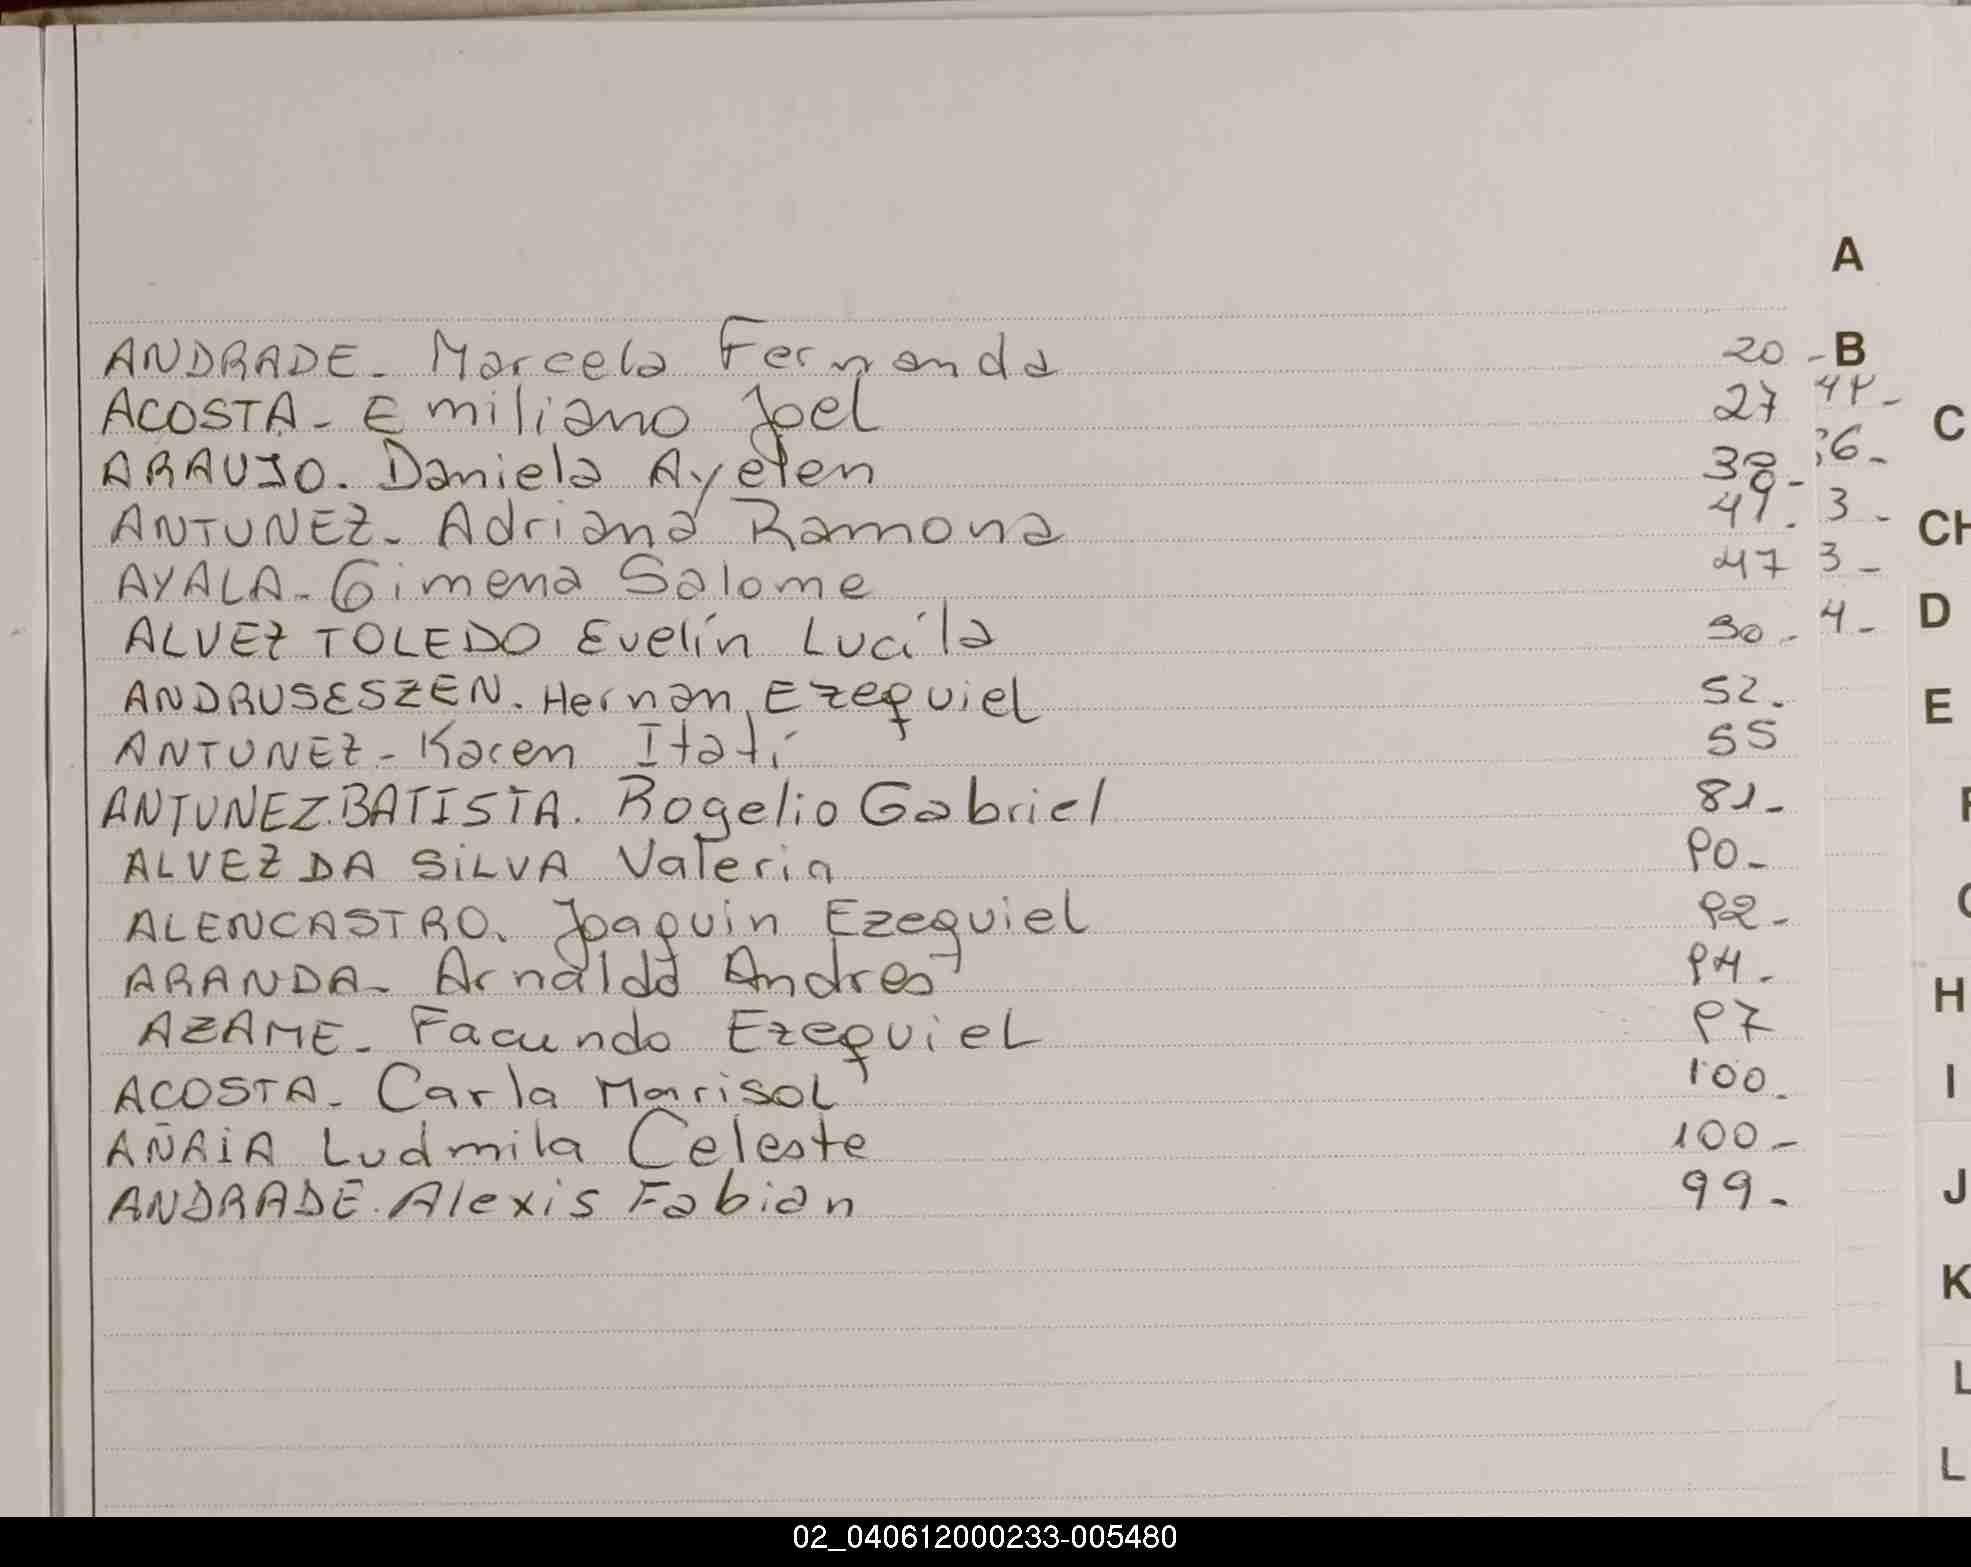 A
ANDRADE- Marcela Fernanda 20 - B
ACOSTA- Emiliano Joel 27
C
ARAUJO. Daniela Ayelen 38-
ANTUNEZ- Adriana Ramona 49.
CH
AYALA- Gimena Salome 47
ALVEZ TOLEDO Evelín Lucíla 50-
D
ANDRUSESZEN. Hernan Ezequiel 52.
E
ANTUNEZ- Karen Itatí 55
ANTUNEZ.BATISTA. Rogelio Gabriel 81-
ALVEZ DA SiLVA Valeria 90-
ALENCASTRO. Joaquin Ezequiel 92-
ARANDA- Arnaldo Andres 94.
H
AZAME- Facundo Ezequiel 97
ACOSTA- Carla Marisol 100.
I
AÑAiA Ludmila Celeste 100-
ANDRADE. Alexis Fabian 99-
J
K
L
L
02_040612000233-005480